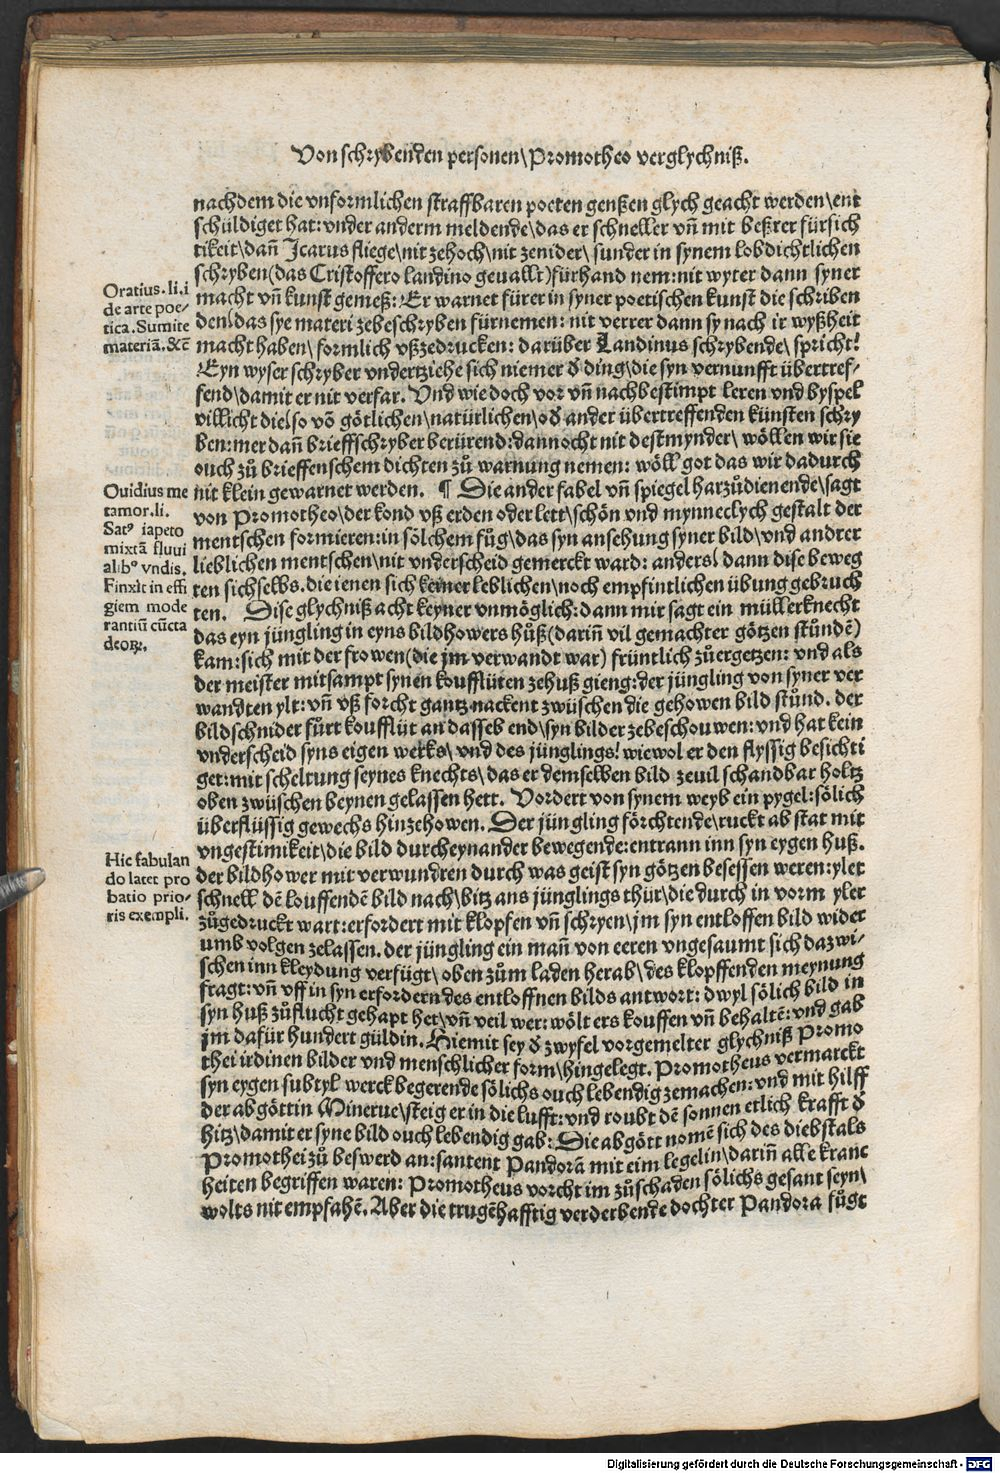 Von schrybenden personen\Promotheo verglychniß.
nachdem die vnformlichen straffbaren poeten genßen glych geacht werden\ent
schüldiget hat: vnder anderm meldende\das er schneller vñ mit beßrer fürsich
tikeit\dañ Icarus fliege\nit zehoch\nit zenider\ sunder in synem lobdichtlichen
schryben(das Cristoffero landino geuallt)fürhand nem: nit wyter dann syner
macht vñ kunst gemeß: Er warnet fürer in syner poetischen kunst die schriben
den\das sye materi zebeschryben fürnemen: nit verrer dann sy nach ir wyßheit
macht haben\ formlich vßzedrucken: darüber Landinus schrybende\ spricht!
Eyn wyser schryber vndertziehe sich niemer d̕ ding\die syn vernunfft übertref-
fend\damit er nit verfar. Vnd wie doch vor vñ nachbestimpt leren vnd byspel
villicht die\so võ götlichen\natürlichen\od̕ ander übertreffenden künsten schry
ben: mer dañ brieffschryber berürend: dannocht nit destmynder\ wöllen wir sie
ouch zů brieffenschem dichten zů warnung nemen: wöll got das wir dadurch
nit klein gewarnet werden. ¶ Die ander fabel vñ spiegel harzůdienende\sagt
von Promotheo\der kond vß erden oder lett\schön vnd mynneclych gestalt der
mentschen formieren: in sölchem fůg\das syn ansehung syner bild\vnd andrer
lieblichen mentschen\nit vnderscheid gemerckt ward: anders\ dann dise beweg
ten sichselbs. die ienen sich keiner leblichen\noch empfintlichen übung gebruch
ten. Dise glychniß acht keyner vnmöglich: dann mir sagt ein müllerknecht
das eyn jüngling in eyns bildhowers hůß(dariñ vil gemachter götzen stůndẽ)
kam: sich mit der frowen(die jm verwandt war) früntlich zůergetzen: vnd als
der meister mitsampt synen koufflüten zehuß gieng: der jüngling von syner ver
wandten ylt: vñ vß forcht gantz nackent zwüschen die gehowen bild stůnd. der
bildschnider fůrt koufflüt an dasseb end\syn bilder zebeschouwen: vnd hat kein
vnderscheid syns eigen werks\ vnd des jünglings! wiewol er den flyssig besichti
get: mit scheltung seynes knechts\das er demselben bild zeuil schandbar holtz
oben zwüschen beynen gelassen hett. Vordert von synem weyb ein pygel: sölich
überflüssig gewechs hinzehowen. Der jüngling förchtende\ruckt ab stat mit
vngestimikeit\die bild durcheynander bewegende: entrann inn syn eygen huß.
der bildhower mit verwundren durch was geist syn götzen besessen weren: ylet
schnell dẽ louffendẽ bild nach\bitz ans jünglings thür\die durch in vorm yler
zůgedruckt wart: erfordert mit klopfen vñ schryen\jm syn entloffen bild wider
umb volgen zelassen. der jüngling ein mañ von eeren vngesaumt sich dazwi-
schen inn kleydung verfügt\ oben zům laden herab\des klopffenden meynung
fragt: vñ vff in syn erfordern des entloffnen bilds antwort: dwyl sölich bild in
syn huß zůflucht gehapt het\vñ veil wer: wölt ers kouffen vñ behaltẽ: vnd gab
jm dafür hundert güldin. Hiemit sey d̕ zwyfel vorgemelter glychniß Promo
thei irdinen bilder vnd menschlicher form\hingelegt. Promotheus vermarckt
syn eygen subtyl werck begerende sölichs ouch lebendig zemachen: vnd mit hilff
der abgöttin Minerue\steig er in die lufft: vnd roubt dẽ sonnen etlich krafft d̕
hitz\damit er syne bild ouch lebendig gab: Die abgött nomẽ sich des diebstals
Promothei zů beswerd an: santent Pandorã mit eim legelin\dariñ alle kranc
heiten begriffen waren: Promotheus vorcht im zůschaden sölichs gesant seyn\
wolts nit empfahẽ. Aber die trugẽhafftig verderbende dochter Pandora fůgt
Oratius. li. i
de arte poe-
tica. Sumite
materiã. &c̄
Ouidius me
tamor. li.
Satꝰ iapeto
mixtã fluui
alibꝰ vndis.
Finxit in effi
giem mode
rantiũ cũcta
deoꝝ.
Hic fabulan
do latet pro
batio prio-
ris exempli.
Digitalisierung gefördert durch die Deutsche Forschungsgemeinschaft - DFG